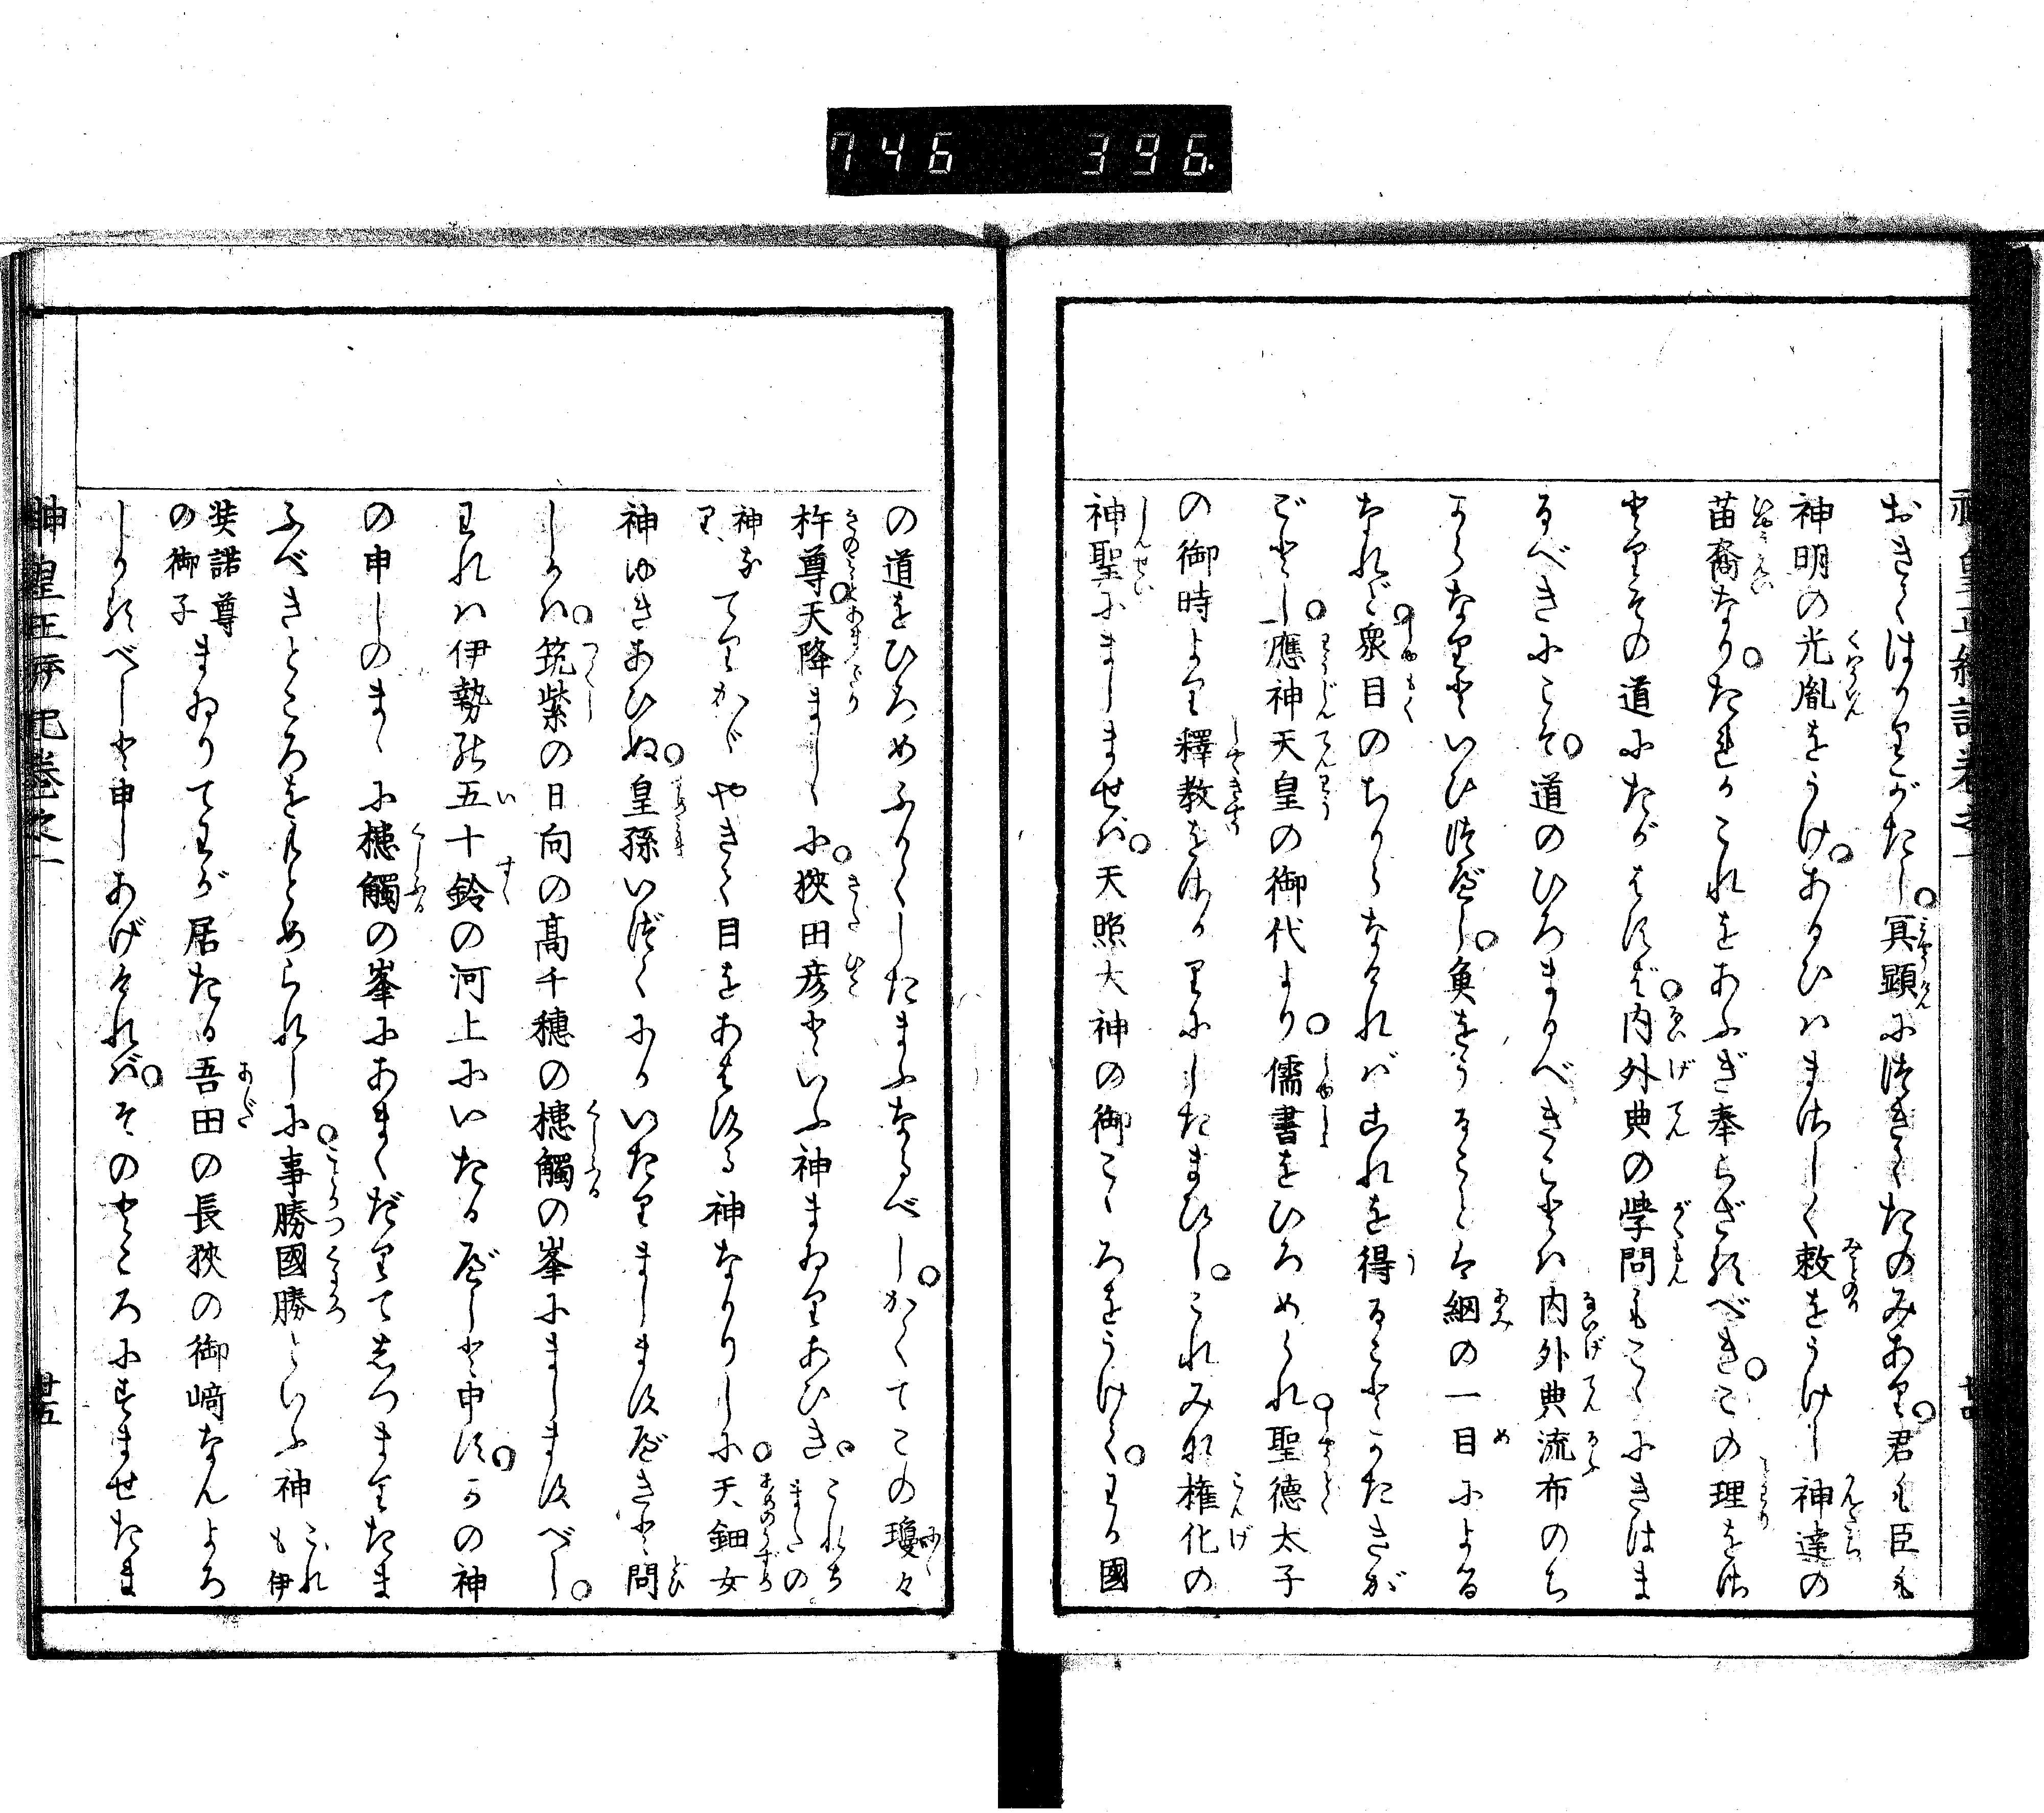 746 396.
おきてはかりがたし。冥顕につきてたのみあり。君も臣も
神明の光胤をうけ。あるひハまさしく敕をうけし神達の
苗裔なり。たれかこれをあふぎ奉らざるべき。この理をさ
とりその道にたがはずバ。内外典の學問もこゝにきはま
るべきにこそ。道のひろまるべきことハ内外典流布のち
からなりといひつべし。魚をうることは綱の一目による
なれど。衆目のちからなければこれを得ることかたきが
ごとし。應神天皇の御代より。儒書をひろめられ。聖德太子
の御時より釋教をさかりにしたまひし。これみな権化の
神聖にましませバ。天照大神の御こゝろをうけて。わが國
の道をひろめふかくしたまふなるべし。かくてこの瓊々
杵尊。天降ましゝに。狹田彦といふ神まゐりあひき。これちまたの
神なり、てりかゞやきて目をあはする神なかりしに。天鈿女
神ゆきあひぬ。皇孫いづくにかいたりましますべきと問
しかバ。筑紫の日向の高千穗の槵觸の峯にましますべし。
われハ伊勢の五十鈴の河上にいたるべしと申す。かの神
の申しのまゝに槵觸の峯にあまくだりてしづまりたま
ふべきところをもとめられしに。事勝國勝といふ神これも伊
弉諾尊の御子まゐりてわが居たる吾田の長狹の御﨑なんよろ
しかるべしと申しあげければ。そのところにすませたま
神皇正統記卷之一
廿五